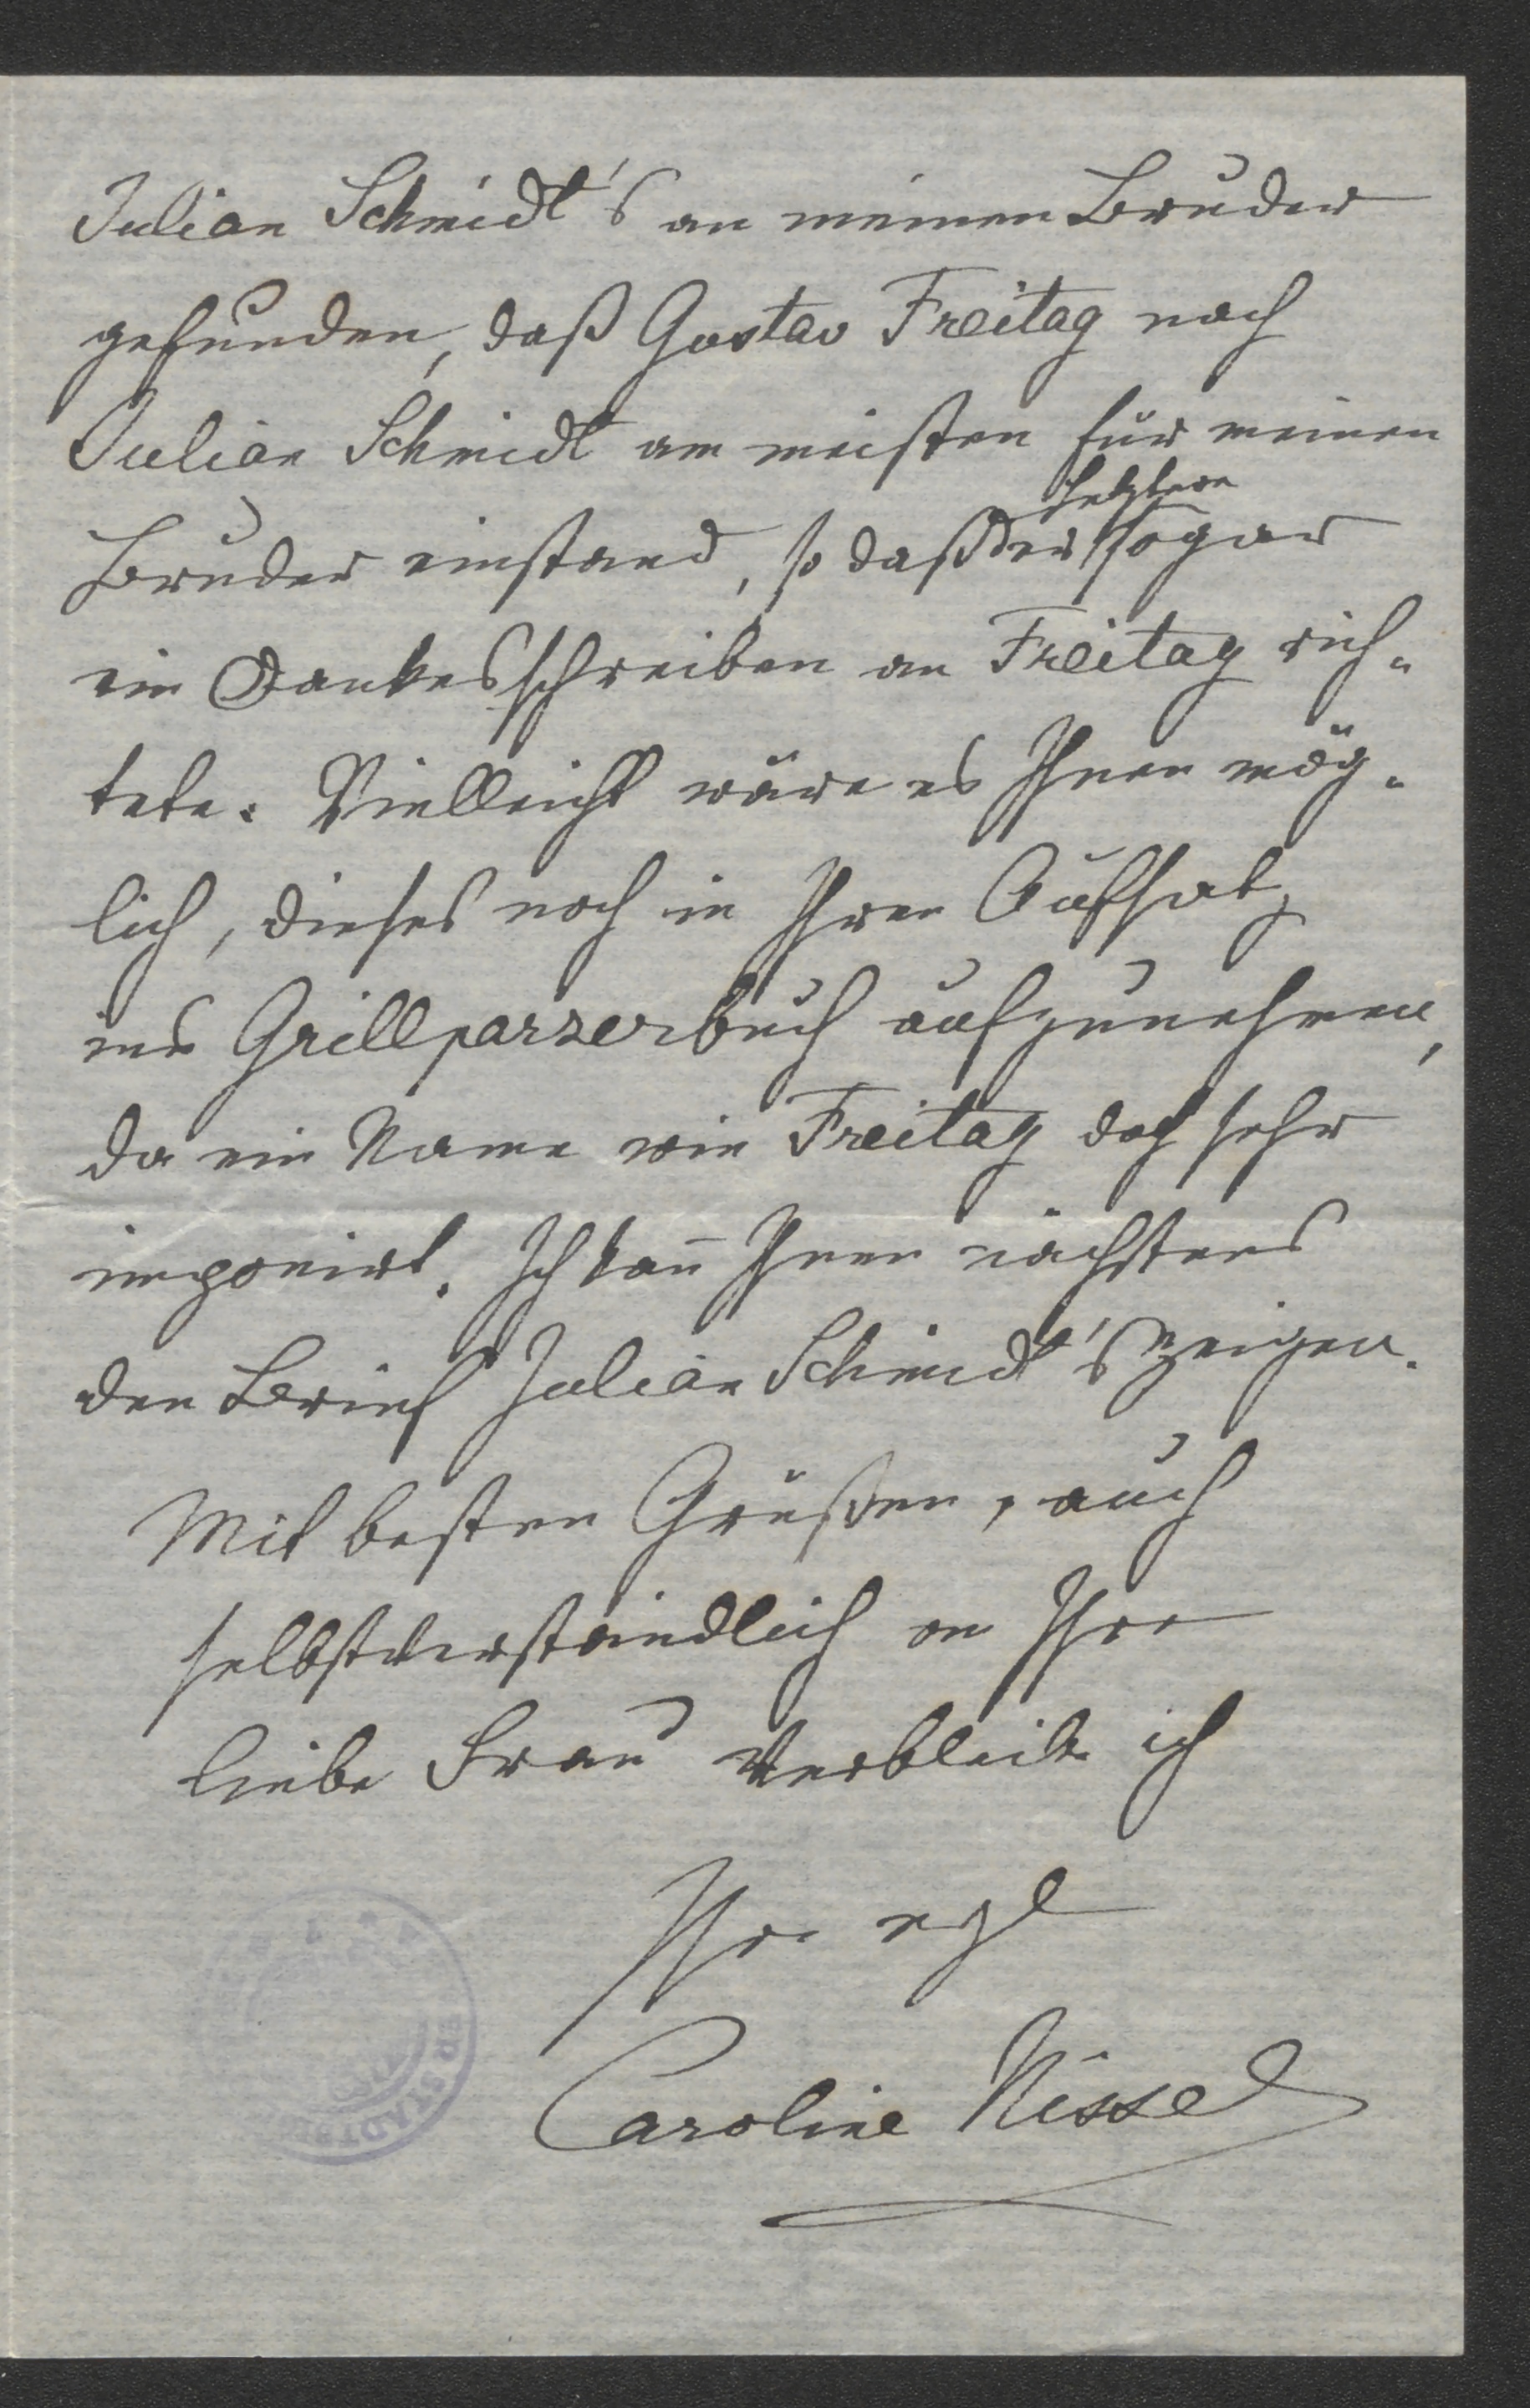 Julian Schmidt's an meinen Bruder
gefunden, daß Gustav Freitag nach
Julian Schmidt am meisten für meinen
Bruder einstand, so daß der letztere sogar
ein Dankesschreiben an Freitag rich-
tete. Vielleicht wäre es Ihnen mög-
lich, dieses noch in Ihren Aufsatz
ins Grillparzerbuch aufzunehmen,
da ein Name wie Freitag doch sehr
imponirt. Ich kañ Ihnen nächstens
den Brief Julian Schmidt's zeigen.
Mit besten Grüßen, auch
selbstverständlich an Ihre
liebe Frau verbleibe ich
Ihre ergl
Caroline Nissel